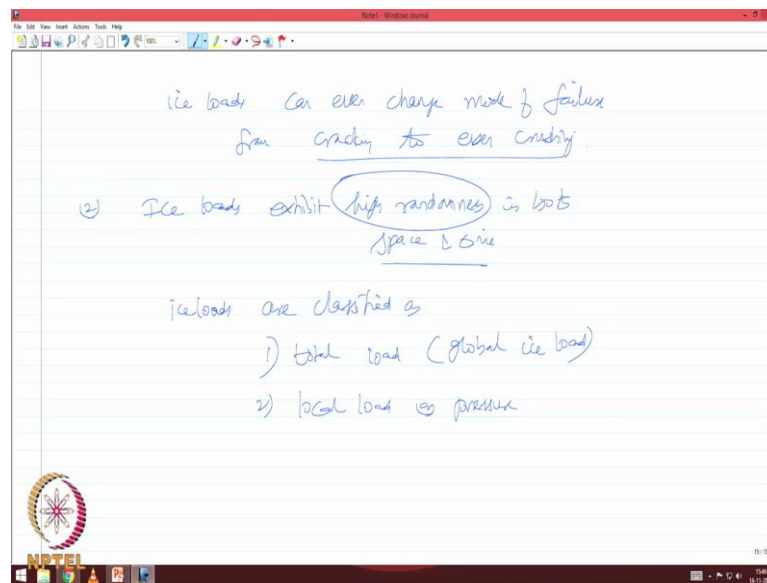 Note1 - Windows Journal
File Edit View Insert Actions Tools Help
ice loads can even change mode of failure
from cracking to even crushing.
(2) Ice loads exhibit high randomness in both
space & time
ice loads are classified as
1) total load (global ice load)
2) local load or pressure
NPTEL
15/15